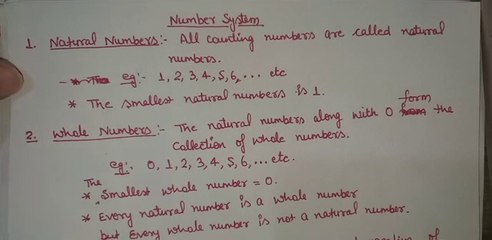 Number System
1. Natural Numbers:- All counting numbers are called natural
numbers.
eg:- 1, 2, 3, 4, 5, 6, ... etc
* The smallest natural numbers is 1.
2. Whole Numbers:- The natural numbers along with 0 form the
Collection of whole numbers.
eg:- 0, 1, 2, 3, 4, 5, 6, ... etc.
The
* Smallest whole number = 0.
* Every natural number is a whole number
but every whole number is not a natural number.
of